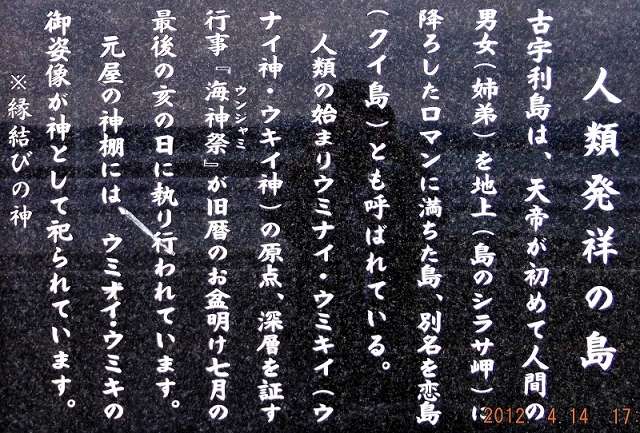 人類発祥の島
古宇利島は、天帝が初めて人間の
男女（姉弟）を地上（島のシラサ岬）に
降ろしたロマンに満ちた島、別名を恋島
（クイ島）とも呼ばれている。
人類の始まりウミナイ・ウミキイ（ウ
ナイ神・ウキイ神）の原点、深層を証す
行事『海神祭』が旧暦のお盆明け七月の
ウンジャミ
最後の亥の日に執り行われています。
元屋の神棚には、ウミオイ・ウミキの
御姿像が神として祀られています。
※縁結びの神
2012. 4.14 17: